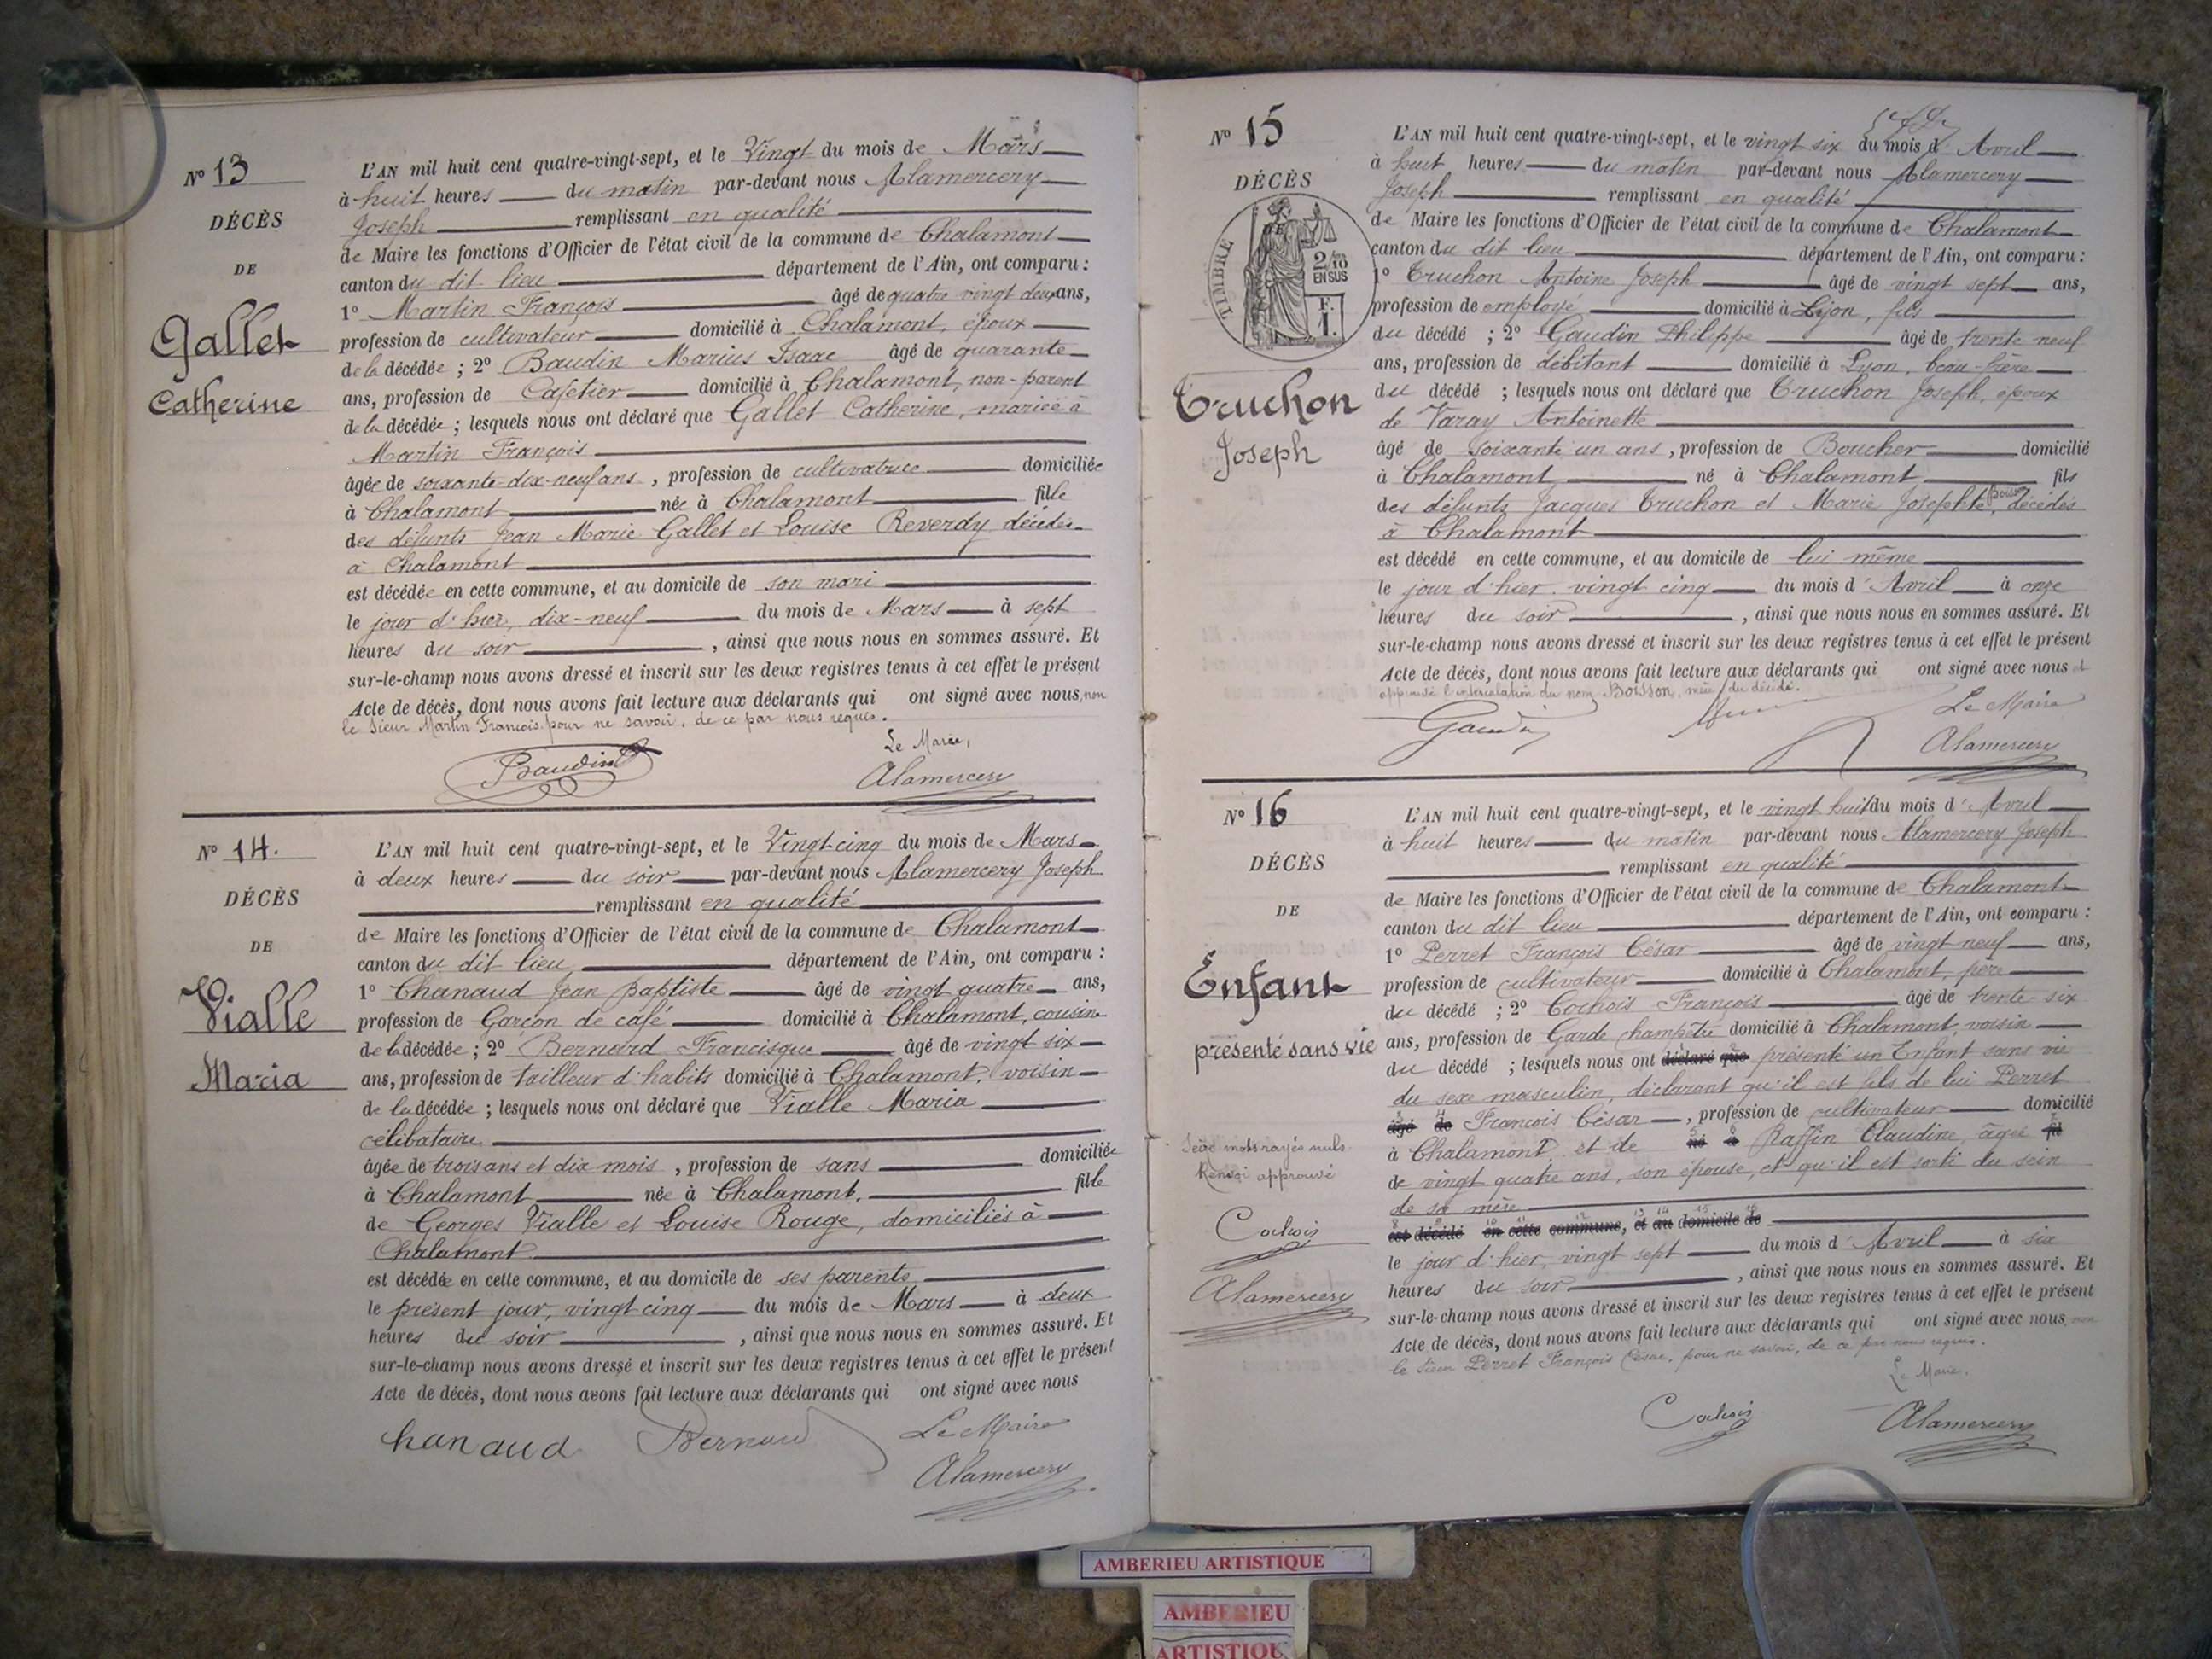 Nº 13
DÉCÈS
DE
Gallet
Catherine
L'AN mil huit cent quatre-vingt-sept, et le Vingt du mois de Mars
à huit heures du matin par-devant nous Alamercery
Joseph remplissant en qualité
de Maire les fonctions d'Officier de l'état civil de la commune de Chalamont
canton du dit lieu département de l'Ain, ont comparu :
1º Martin François âgé de quatre vingt deux ans,
profession de cultivateur domicilié à Chalamont, époux
de la décédée ; 2º Baudin Marius Isaac âgé de quarante
ans, profession de Cafetier domicilié à Chalamont, non-parent
de la décédée ; lesquels nous ont déclaré que Gallet Catherine, mariée à
Martin François
âgée de soixante-dix-neuf ans, profession de cultivatrice domiciliée
à Chalamont née à Chalamont fille
des défunts Jean Marie Gallet et Louise Reverdy décédés
à Chalamont
est décédée en cette commune, et au domicile de son mari
le jour d'hier, dix-neuf du mois de Mars à sept
heures du soir, ainsi que nous nous en sommes assuré. Et
sur-le-champ nous avons dressé et inscrit sur les deux registres tenus à cet effet le présent
Acte de décès, dont nous avons fait lecture aux déclarants qui ont signé avec nous, non
le Sieur Martin François pour ne savoir, de ce par nous requis.
Le Maire,
Baudin
Alamercery
Nº 14.
DÉCÈS
DE
Vialle
Maria
L'AN mil huit cent quatre-vingt-sept, et le Vingt cinq du mois de Mars
à deux heures du soir par-devant nous Alamercery Joseph
remplissant en qualité
de Maire les fonctions d'Officier de l'état civil de la commune de Chalamont
canton du dit lieu département de l'Ain, ont comparu :
1º Chanaud Jean Baptiste âgé de vingt quatre ans,
profession de Garçon de café domicilié à Chalamont, cousin
de la décédée ; 2º Bernard Francisque âgé de vingt six
ans, profession de tailleur d'habits domicilié à Chalamont, voisin
de la décédée ; lesquels nous ont déclaré que Vialle Maria
célibataire
âgée de trois ans et dix mois, profession de sans domiciliée
à Chalamont née à Chalamont. fille
de Georges Vialle et Louise Rouge, domiciliés à
Chalamont
est décédée en cette commune, et au domicile de ses parents
le présent jour, vingt cinq du mois de Mars à deux
heures du soir, ainsi que nous nous en sommes assuré. Et
sur-le-champ nous avons dressé et inscrit sur les deux registres tenus à cet effet le présent
Acte de décès, dont nous avons fait lecture aux déclarants qui ont signé avec nous
chanaud Bernard Le Maire
Alamercery
Nº 15
DÉCÈS
TIMBRE
2/10
EN SUS
F.
1.
Truchon
Joseph
L'AN mil huit cent quatre-vingt-sept, et le vingt six du mois d'Avril
à huit heures du matin par-devant nous Alamercery
Joseph remplissant en qualité
de Maire les fonctions d'Officier de l'état civil de la commune de Chalamont
canton du dit lieu département de l'Ain, ont comparu :
1º Truchon Antoine Joseph âgé de vingt sept ans,
profession de employé domicilié à Lyon, fils
du décédé ; 2º Gaudin Philippe âgé de trente neuf
ans, profession de débitant domicilié à Lyon, beau-frère
du décédé ; lesquels nous ont déclaré que Truchon Joseph, époux
de Varay Antoinette
âgé de soixante un ans, profession de Boucher domicilié
à Chalamont, né à Chalamont fils
des défunts Jacques Truchon et Marie Josephte Boisson, décédés
à Chalamont
est décédé en cette commune, et au domicile de lui même
le jour d'hier, vingt cinq du mois d'Avril à onze
heures du soir, ainsi que nous nous en sommes assuré. Et
sur-le-champ nous avons dressé et inscrit sur les deux registres tenus à cet effet le présent
Acte de décès, dont nous avons fait lecture aux déclarants qui ont signé avec nous et
approuvé l'intercalation du nom Boisson, mère du décédé.
Le Maire
Gaudin
Alamercery
Nº 16
DÉCÈS
DE
Enfant
présenté sans vie
Seize mots rayés nuls
Renvoi approuvé
Cochois
Alamercery
L'AN mil huit cent quatre-vingt-sept, et le vingt huit du mois d'Avril
à huit heures du matin par-devant nous Alamercery Joseph
remplissant en qualité
de Maire les fonctions d'Officier de l'état civil de la commune de Chalamont
canton du dit lieu département de l'Ain, ont comparu :
1º Perret François César âgé de vingt neuf ans,
profession de cultivateur domicilié à Chalamont, père
du décédé ; 2º Cochois François âgé de trente-six
ans, profession de Garde champêtre domicilié à Chalamont, voisin
du décédé ; lesquels nous ont déclaré que présenté un Enfant sans vie
du sexe masculin, déclarant qu'il est fils de lui Perret
âgé de François César, profession de cultivateur domicilié
à Chalamont, et de né à Raffin Claudine, âgée fil
de vingt quatre ans, son épouse, et qu'il est sorti du sein
de sa mère
est décédé en cette commune, et au domicile de
le jour d'hier, vingt sept du mois d'Avril à six
heures du soir, ainsi que nous nous en sommes assuré. Et
sur-le-champ nous avons dressé et inscrit sur les deux registres tenus à cet effet le présent
Acte de décès, dont nous avons fait lecture aux déclarants qui ont signé avec nous, non
le Sieur Perret François César, pour ne savoir, de ce par nous requis.
Le Maire.
Cochois
Alamercery
AMBERIEU ARTISTIQUE
AMBERIEU
ARTISTIQU